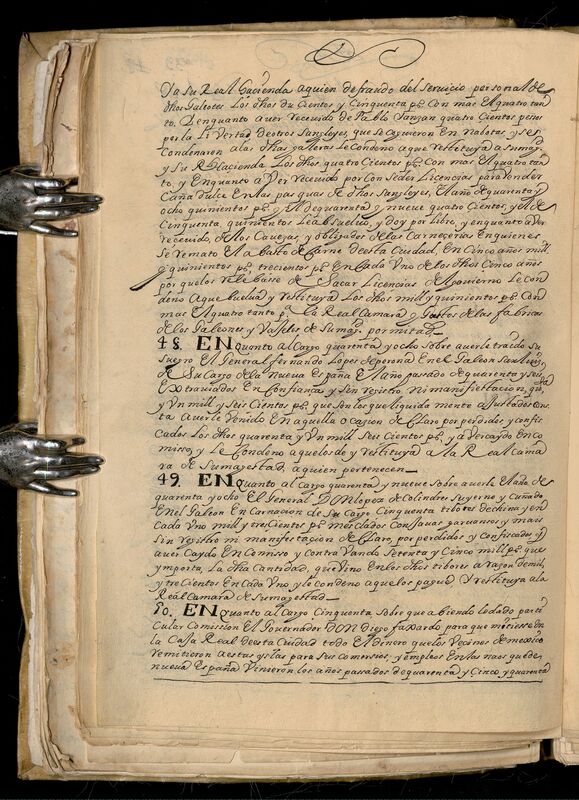 Ya su Real Hacienda aquien defraudo del servicio personal de
dhos Galeotes Los dhos du Cientos y Cinquenta ps. Con mas El quatro tan
to. Y enquanto aver Recevido de Pablo quatro Cientos pesos
por la Livertad de otros Sangleyes, que se Coxieron En y se
Condenaron alas dhas Galeras Le Condeno a que Restituya a su magd.
y su Rl. Hacienda Los dhos quatro Cientos ps. Con mas El quatro tan
to, y Enquanto a Ver Recevido por Conseder Licencias para Vender
Caña dulce En las pasquas de dhos Sangleyes, El año de quarenta y
ocho quinientos ps. y El de quarenta y nueve quatro Cientos, y el de
Cinquenta quinientos Le absuelvo, y doy por Libre, y enquanto a Ver
Recevido, de los Cavezas y obligados de las Carnecerias En quienes
Se Remato El abasto de Carne de esta Ciudad, En Cinco años mill
y quinientos ps. trecientos ps. En Cada Uno de los dhos Cinco años
por que los Relebase de Sacar Licencias del govierno Le Con
deno a que buelva y Restituya Los dhos mill y quinientos ps. Con
mas El quatro tanto pa. La Real Camara y gastos de las fabricas
de los Galeones y Vasseles de Su magd. por mitad
48. EN quanto al Cargo quarenta y ocho sobre averle traido su
suegro El General fernando Lopez de perona En el Galeon
de Su Cargo de la nueva España El año pasado de quarenta y seis
Extraviados En Confiança y sin rexistro, ni manifiestacion, quarenta
y Un mill y seis Cientos ps. que son los que liquida mente a Justados Cons
ta averle Venido En aquella ocasion declaro por perdidos y confis
cados Los dhos quarenta y Un mill Seis Cientos ps. y aver Caydo En Co
misso, y Le Condeno aque los de y Restituya a la Real Cama
ra de Su magestad, a quien pertenecen
49. EN quanto al cargo quarenta y nueve Sobre averle El año de
quarenta y ocho El General DON Lopez de Colindres su yerno y Cuñado
En el Galeon En Carnacion de Su Cargo Cinquenta tibores de china y en
Cada Uno mill y tres Cientos ps. mesclados Con Javas garvansos, y mais
Sin Rexistro ni manifestacion declaro, por perdidos y Confiscados, y
aver Caydo En Comisso y Contra Vando Setenta y Cinco mill ps. que
ymporta La dha Cantidad, que vino En los dhos tibores a razon de mill
y tres Cientos En Cada Uno y le condeno a que los pague y Restituya a la
Real Camara de Su magestad
50. EN quanto al Cargo Cinquenta Sobre que abiendo le dado parti
cular Comission El Governador DON Diego faxardo, para que metiesse En
la Casa Real de esta Ciudad todo El dinero que los Vecinos de mexico
Remitieron a estas yslas para sus comersios, y empleos En las naos que de
nueva España Vinieron los años passados de quarenta y Cinco, y quarenta